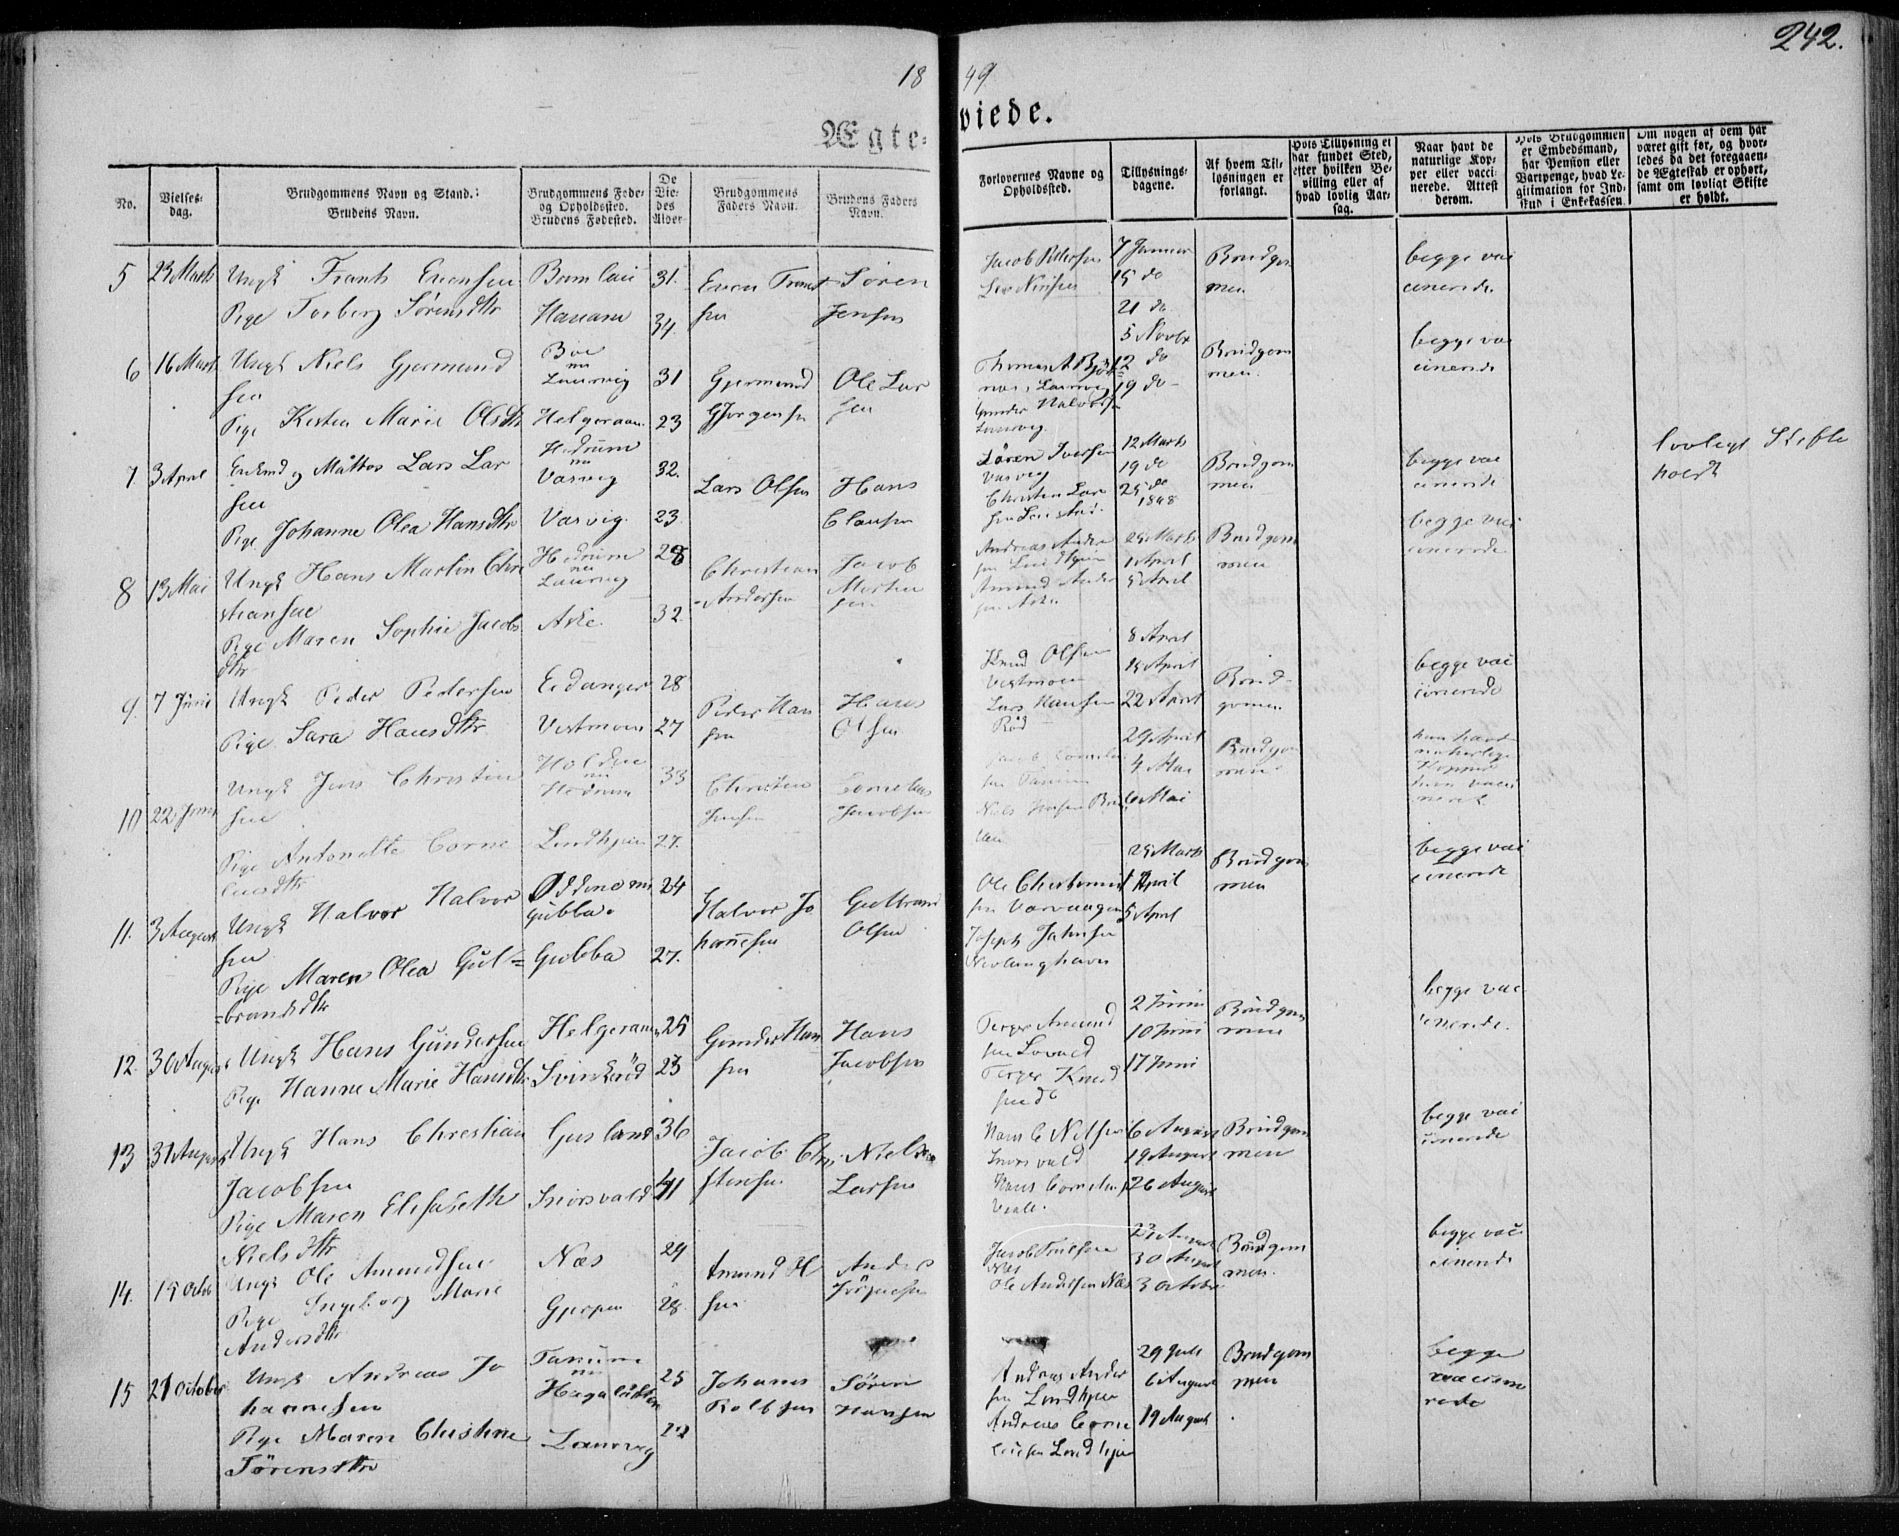 242.
18 49
Ægte- viede.
No.
Vielses-dag.
Brudgommens Navn og Stand.:
Brudens Navn.
Brudgommens Føde- og Opholdssted.
Brudens Fødested.
De Viedes Alder
Brudgommens Faders Navn.
Brudens Faders Navn.
Forlovernes Navne og Opholdssted.
Tillysnings-dagene.
Af hvem Tillysningen er forlangt.
Hvis Tillysning ei har fundet Sted, efter hvilken Bevilling eller af hvad lovlig Aarsag.
Naar havt de naturlige Kopper eller vaccinerede. Attest derom.
Hvis Brudgommen er Embedsmand, har Pension eller Vartpenge, hvad Legitimation for Indskud i Enkekassen.
Om nogen af dem har været gift før, og hvorledes da det foregaaende Ægteskab er ophørt, samt om lovligt Skifte er holdt.
5 23 Marts Ungk Frants Ericsen 31. Søren
Pige Torberg Sørensdtr Hanane 34. sen Jensen
Jacob Pettersen 7 Januar Brudgommen begge vaccinerede
15 do
21 do
6 16 Marts Ungk Niels Gjermundsen Bøe nu Laurvig 31 Gjermund Gjorgensen Ole Larsen
Pige Kirsten Marie Olsdtr Helgeraaen 23
Laurvig Gunder Halvorsen Laurvig.
5 Novbr
12 do
19 do
Brudgommen. begge vaccinerede
7. 3 April Enkmd og Matros Lars Larsen Hedrum nu Vasvig 32. Lars Olsen Hans Clausen
Pige Johanne Olea Hansdtr Vasvig. 23
Søren Iversen Vasvig
Christen Larsen
12 Marts
19 do
25 do 1848
Brudgommen begge vaccinerede lovligt Skifte holdt
8 13 Mai Ungk Hans Martin Christiansen Hedrum nu Laurvig 28 Christian Andersen Jacob Mortensen
Pige Maren Sophie Jacobsdtr Aske. 32.
Andreas Andersen Lindhjem
Amund Andersen Aske
25 Marts
1 April
5 April
Brudgommen begge vaccinerede
9. 7 Juni Ungk Peder Pedersen Eidanger 28 Peder Hansen Hans Olsen
Pige Sara Hansdtr Vestmoen 27
Knud Olsen Vestmoen
Lars Hansen Rød
8 April
15 April
22 April
Brudgommen. begge vaccinerede
10 22 Juni Ungk Jens Christensen Holden nu Hedrum 33 Christen Jensen Cornelius Jacobsen
Pige Antonette Corneliusdtr Lindhjem 27.
29 April
4 Mai
6 Mai
Brudgommen
11. 3 August Ungk Halvor Halvorsen nu Gubba. 24 Halvor Johannesen Gulbrand Olsen
Pige Maren Olea Gulbrandsdtr Gubba 27.
Joseph Jahnsen Nevlunghavn
25 Marts
1 April
5 April
Brudgommen begge vaccinerede
12. 30 August Ungk Hans Gundersen Helgeraaen 25 Gunder Hansen Hans Jacobsen
Pige Hanne Marie Hansdtr 23
Terger Amundsen
Terger Knudsen do
2 Juni
10 Juni
17 Juni
Brudgommen begge vaccinerede.
13 31 August Ungk Hans Christian Jacobsen Gusland 36 Jacob Christensen Niels Larsen
Pige Maren Elisabeth Nielsdtr 41
Hans C Nilsen
6 August
19 August
26 August
Brudgommen begge vaccinerede
14. 15 Octob Ungk Ole Amundsen Næs 29 Amund Anders Jørgensen
Pige Ingeborg Marie Andersdtr Gjerpen 28.
Næs
Ole Andersen Næs
30 August
3 October
Brudgommen. begge vaccinerede
15 21 October Ungk Andreas Johannesen Tanum nu 25 Johannes Søren Hansen
Pige Maren Christine Sørensdtr Laurvig
Andreas Andersen Lindhjem
Andreas Corneliusen Lindhjem
29 Juli
6 August
19 August
Brudgommen begge vaccinerede